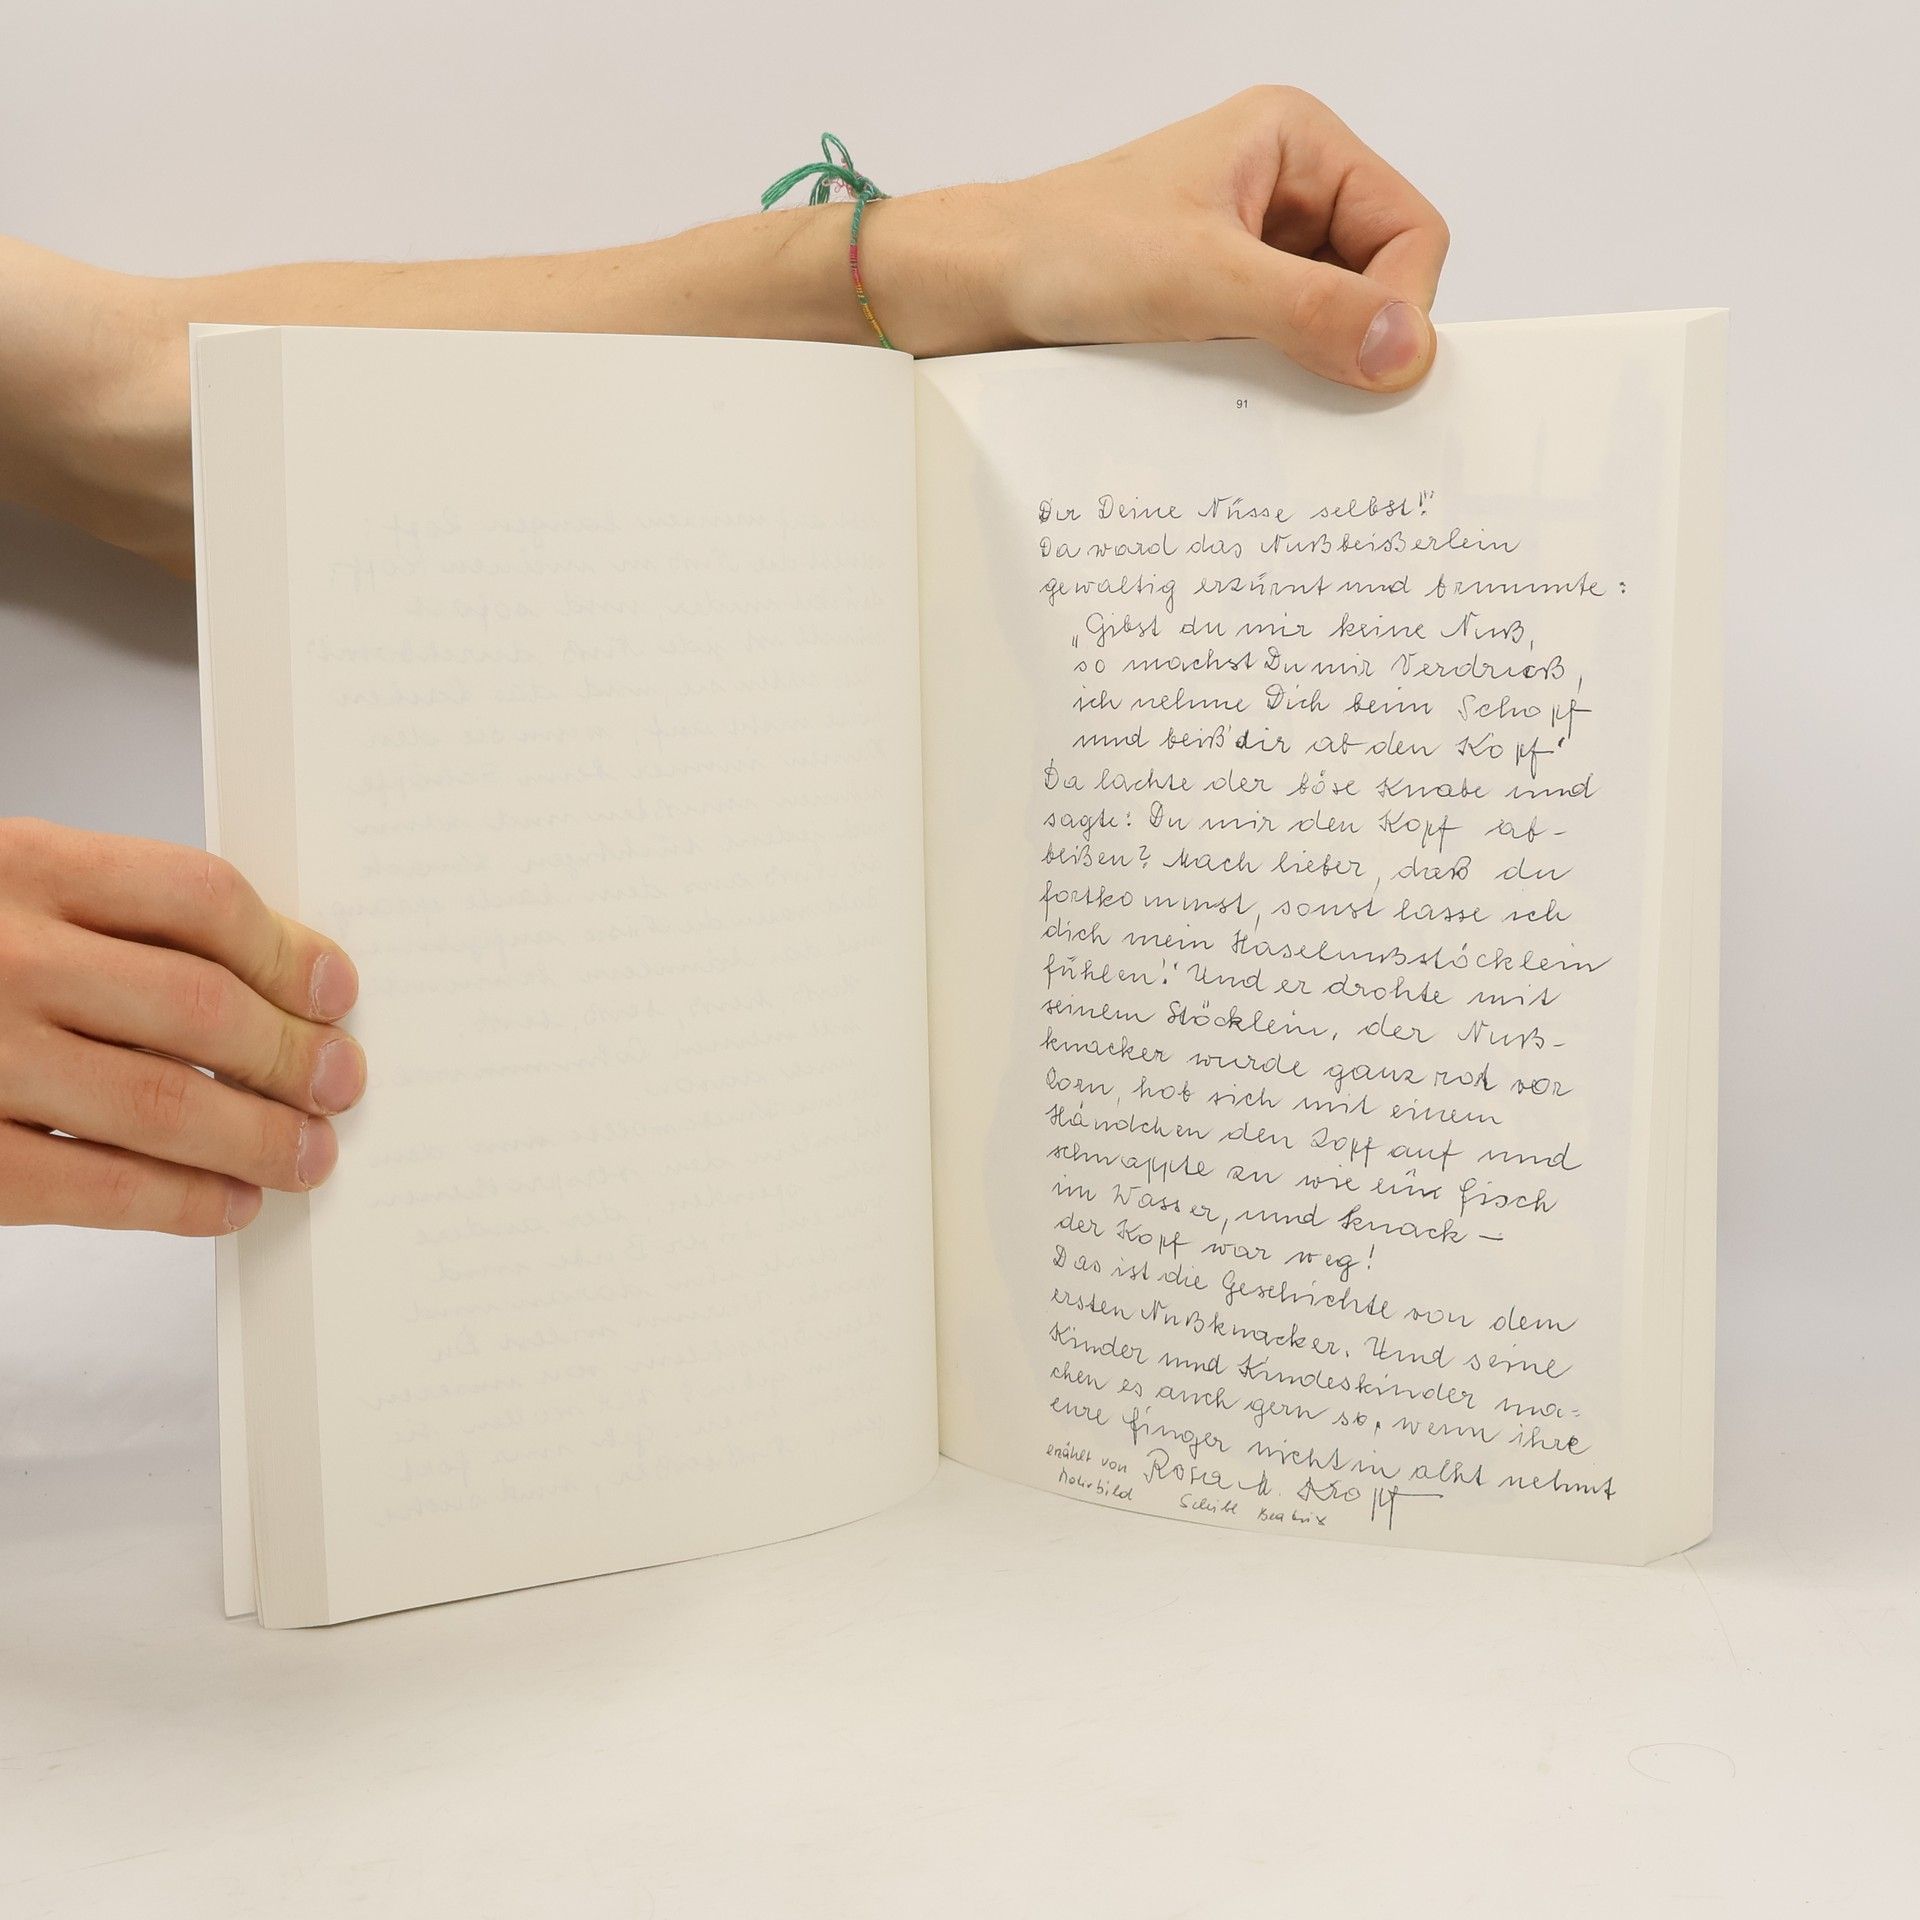 91
Dir Deine Nüsse selbst!"
Da ward das Nußbeißerlein
gewaltig erzürnt und brummte:
„Gibst du mir keine Nuß,
so machst Du mir Verdruß,
ich nehme Dich beim Schopf
und beiß' dir ab den Kopf"
Da lachte der böse Knabe und
sagte: Du mir den Kopf ab-
beißen? Mach lieber, daß du
fortkommst, sonst lasse ich
dich mein Haselnußstöcklein
fühlen!" Und er drohte mit
seinem Stöcklein, der Nuß-
knacker wurde ganz rot vor
Zorn, hob sich mit einem
Händchen den Zopf auf und
schnappte zu wie ein fisch
im Wasser, und knack –
der Kopf war weg!
Das ist die Geschichte von dem
ersten Nußknacker. Und seine
Kinder und Kindeskinder ma=
chen es auch gern so, wenn ihre
eure finger nicht in acht nehmt
erzählt von Rosa M. Kropf
Schibl Beatrix